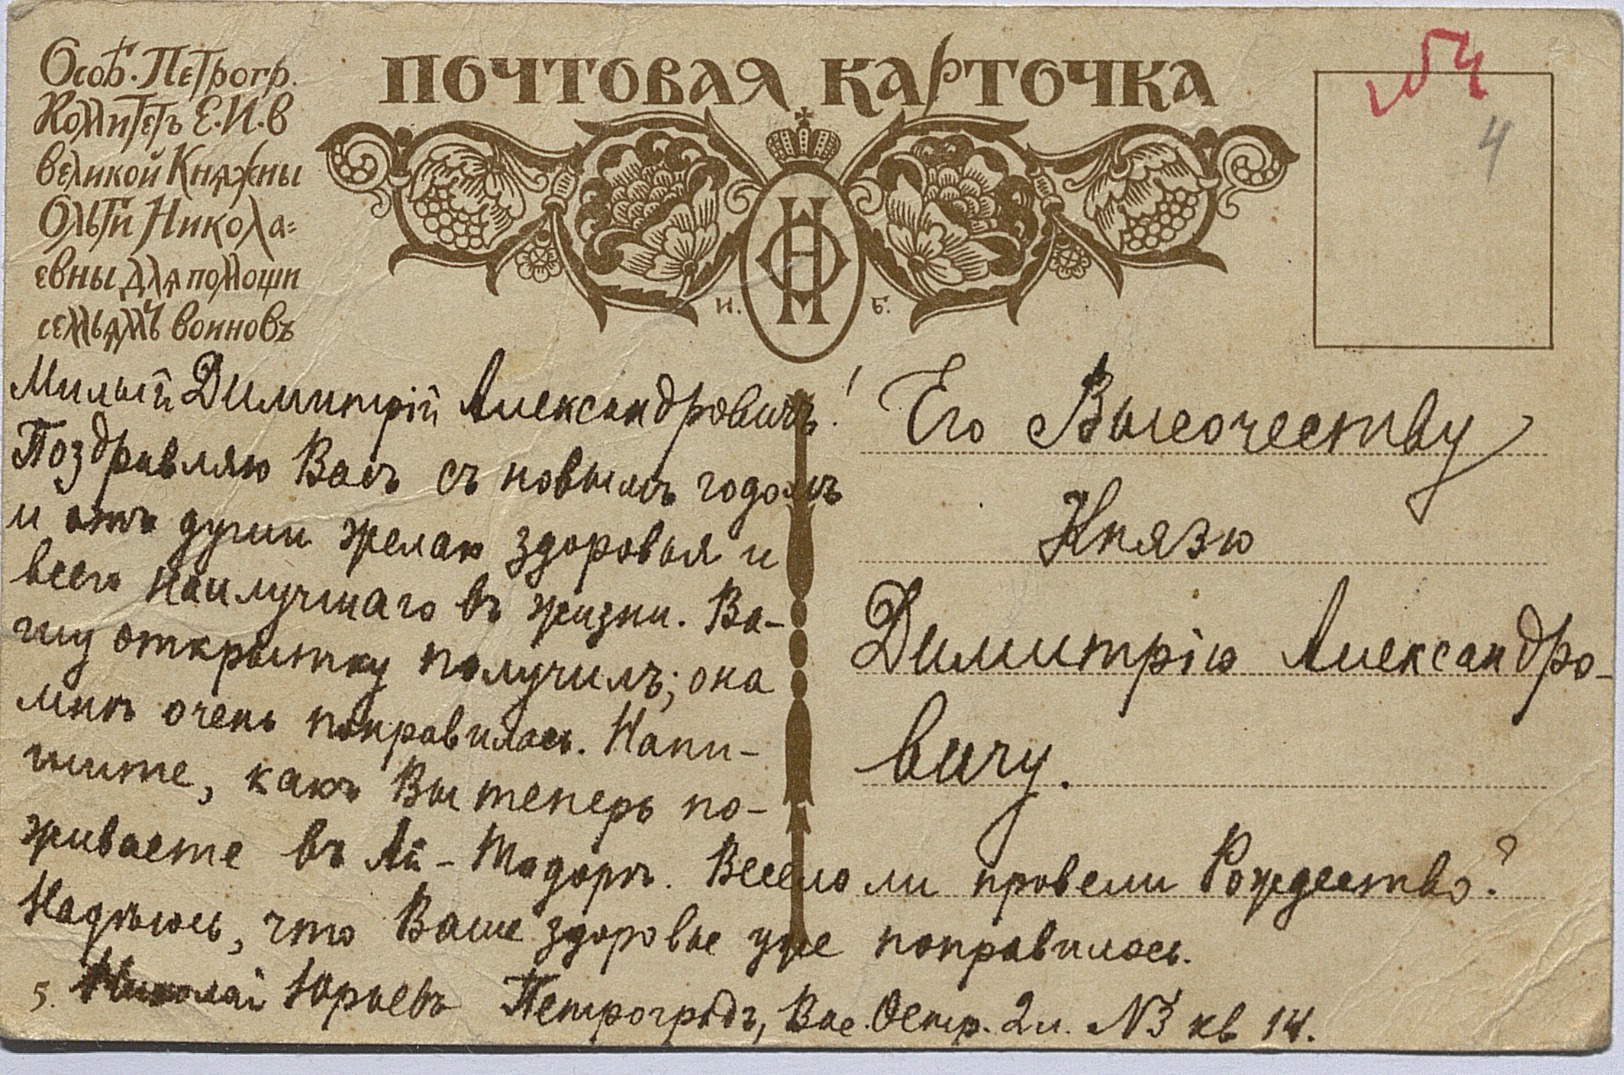 ПОЧТОВАЯ КАРТОЧКА
Особ. Петрогр.
Комитетъ Е.И.В
Великой Княжны
Ольги Никола=
евны для помощи
семьямъ воиновъ
Н О
И. Б.
№ 4
4
Милый Димитрій Александровичъ!
Поздравляю Васъ съ новымъ годомъ
и отъ души желаю здоровья и
всего наилучшаго въ жизни. Ва-
шу открытку получилъ; она
мнѣ очень понравилась. Напи-
шите, какъ Вы теперь по-
живаете въ Ай-Тодорѣ. Весело ли провели Рождество?
Надѣюсь, что Ваше здоровье уже поправилось.
5. Николай Юрьевъ Петроградъ, Вас. Остр. 2 л. №3 кв 14.
Его Высочеству
Князю
Димитрію Александро-
вичу.